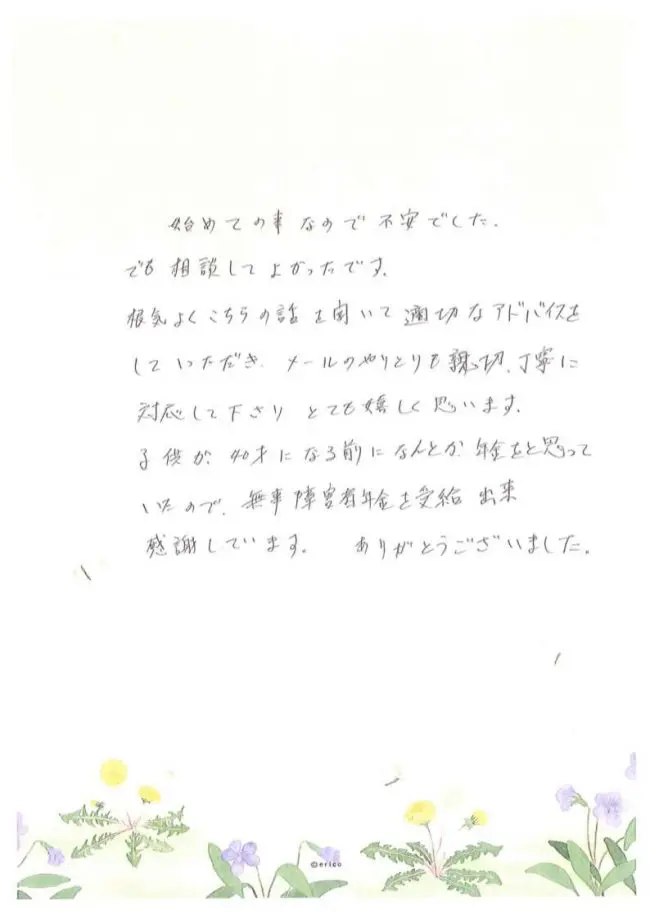 始めての事なので不安でした。
でも相談してよかったです。
根気よくこちらの話を聞いて適切なアドバイスを
していただき、メールのやりとりも親切、丁寧に
対応して下さり とても嬉しく思います。
子供が、40才になる前になんとか年金をと思って
いたので、無事障害者年金を受給出来
感謝しています。 ありがとうございました。
©erico